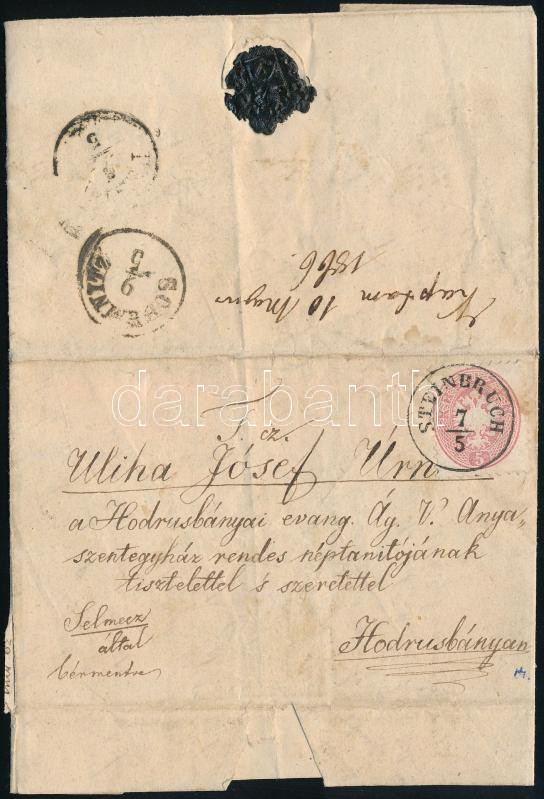 SCHEMNITZ
9/5
Kaptam 10 Május
1866.
STEINBRUCH
7/5
T. cz.
Uliha Jósef Urn
a Hodrusbányai evang. Ág. V. Anya=
szentegyház rendes néptanitójának
tisztelettel s szeretettel
Selmecz
által
bérmentve
Hodrusbányan
darabanth